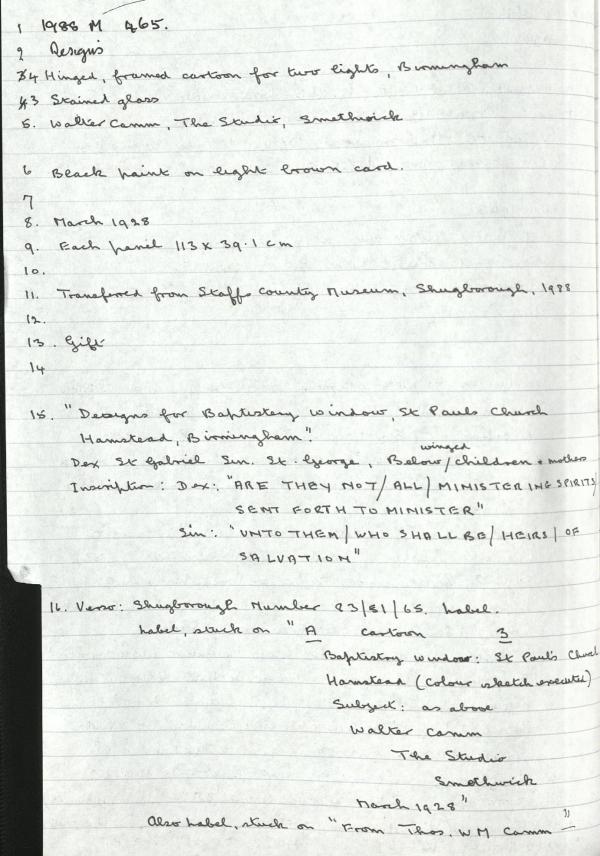 1 1988 M 465.
2 Designs
34 Hinged, framed cartoon for two lights, Birmingham
43 Stained glass
5. Walter Camm, The Studio, Smethwick
6 Black paint on light brown card.
7
8. March 1928
9. Each panel 113 x 39.1 cm
10.
11. Transferred from Staffs County Museum, Shugborough, 1988
12.
13. Gift
14
15. "Designs for Baptistery Window, St Pauls Church
Hamstead, Birmingham".
winged
Dex St Gabriel Sin. St. George, Below/children + mothers
Inscription: Dex: "ARE THEY NOT/ALL/MINISTERING SPIRITS/
SENT FORTH TO MINISTER"
Sin: "UNTO THEM/WHO SHALL BE/HEIRS/OF
SALVATION"
16. Verso: Shugborough Number 83/81/65. Label.
Label, stuck on "A cartoon 3
Baptistry window: St Paul's Church
Hamstead (Colour sketch executed)
Subject: as above
Walter Camm
The Studio
Smethwick
March 1928"
Also label, stuck on "From Thos. WM Camm –"